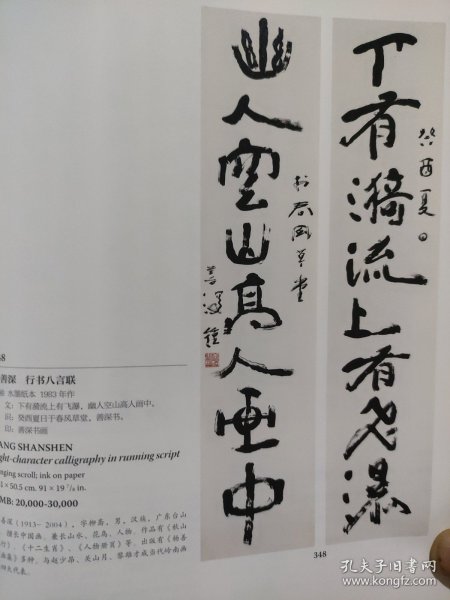 下有漪流上有飛瀑
癸酉夏日
幽人空山高人画中
於春風草堂
善深
善深 行书八言联
轴 水墨纸本 1983 年作
文：下有漪流上有飞瀑，幽人空山高人画中。
款：癸酉夏日于春风草堂，善深书。
印：善深书画
ANG SHANSHEN
ght-character calligraphy in running script
nging scroll; ink on paper
× 50.5 cm. 91 × 19 7/8 in.
MB: 20,000-30,000
善深（1913- 2004），字柳斋，男，汉族，广东台山
擅长中国画，兼长山水、花鸟、人物。作品有《秋山
行》、《十二生肖》、《人物册页》等。出版有《杨善
画集》多种。与赵少昂、关山月、黎雄才成当代岭南画
四大代表。
348
孔夫子旧书网